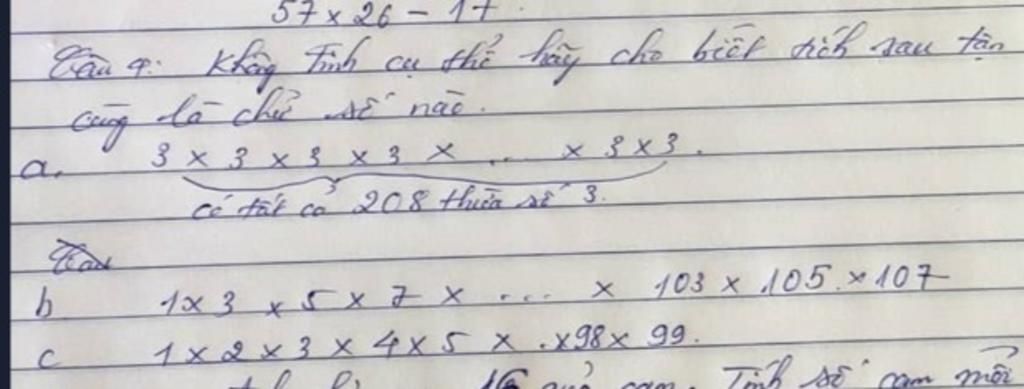 57 x 26 - 17.
Câu 9: Không tính cụ thể hãy cho biết tích sau tận
cùng là chữ số nào.
a. 3 x 3 x 3 x 3 x ... x 3 x 3.
có tất cả 208 thừa số 3.
Câu
b 1 x 3 x 5 x 7 x ... x 103 x 105 x 107
c 1 x 2 x 3 x 4 x 5 x . x 98 x 99.
16 quả cam. Tính số cam mỗi